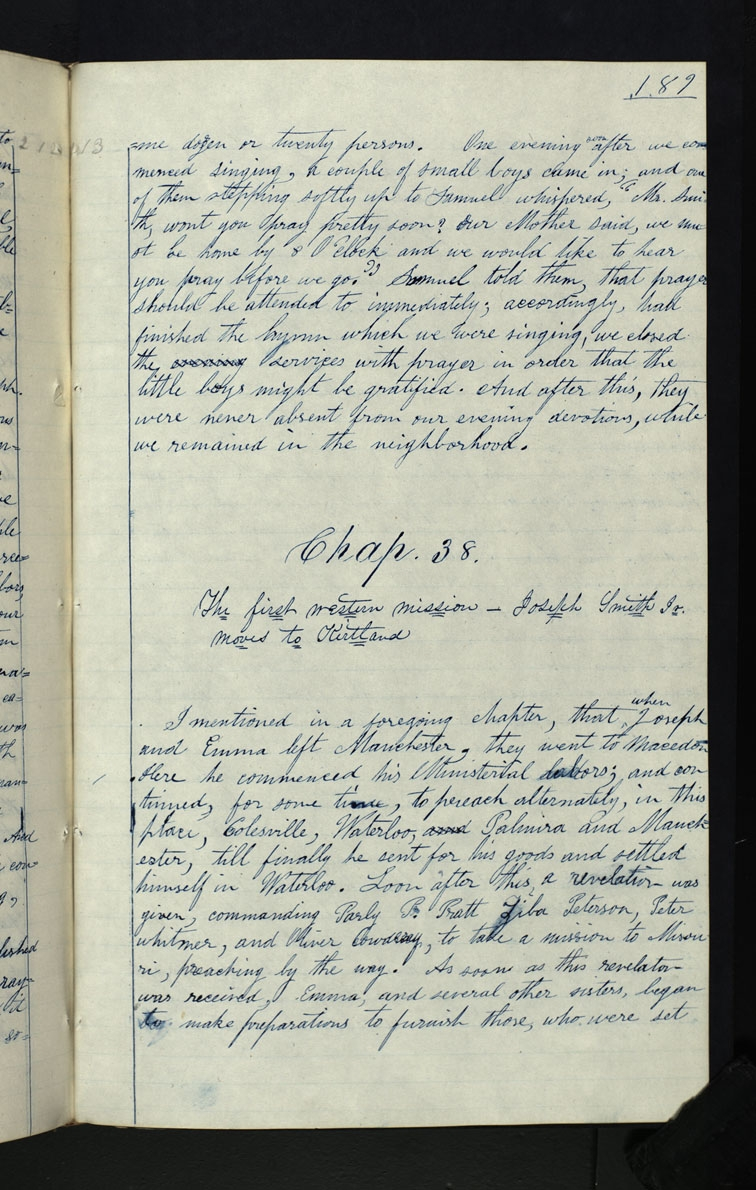 189
=me dozen or twenty persons. One evening soon after we com
menced singing, a couple of small boys came in; and one
of them stepping softly up to Samuel whispered, "Mr. Smi
th, wont you pray pretty soon? our Mother said, we mu
st be home by 8 O'Clock and we would like to hear
you pray before we go." Samuel told them, that prayer
should be attended to immediately; accordingly, had
finished the hymn which we were singing, we closed
the evening services with prayer in order that the
little boys might be gratified. And after this, they
were never absent from our evening devotions, while
we remained in the neighborhood.
Chap. 38.
The first western mission — Joseph Smith Jr.
moves to Kirtland
I mentioned in a foregoing chapter, that, when Joseph
and Emma left Manchester, they went to Macedon
Here he commenced his Ministerial labors; and con
tinued, for some time, to preach alternately, in this
place, Colesville, Waterloo, and Palmira and Manch
ester, till finally he sent for his goods and settled
himself in Waterloo. Soon after this, a revelation was
given, commanding Parly P. Pratt Ziba Peterson, Peter
whitmer, and Oliver Cowdray, to take a mission to Missou
ri, preaching by the way. As soon as this revelation
was received, Emma, and several other sisters, began
to make preparations to furnish those, who were set